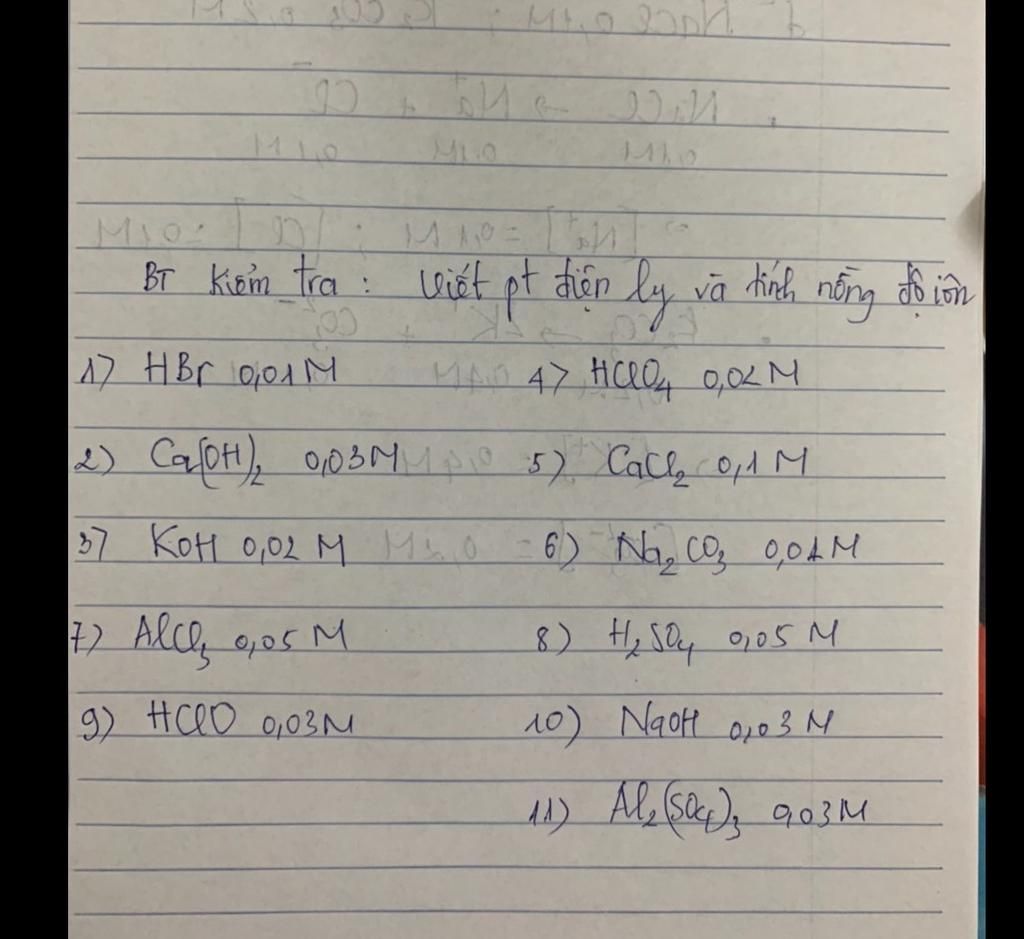 BT Kiểm tra : Viết pt điện ly và tính nồng độ ion
1) HBr 0,01M 4) HClO4 0,02M
2) Ca(OH)2 0,03M 5) CaCl2 0,1M
3) KOH 0,02M 6) Na2CO3 0,01M
7) AlCl3 0,05M 8) H2SO4 0,05M
9) HClO 0,03M 10) NaOH 0,03M
11) Al2(SO4)3 0,03M